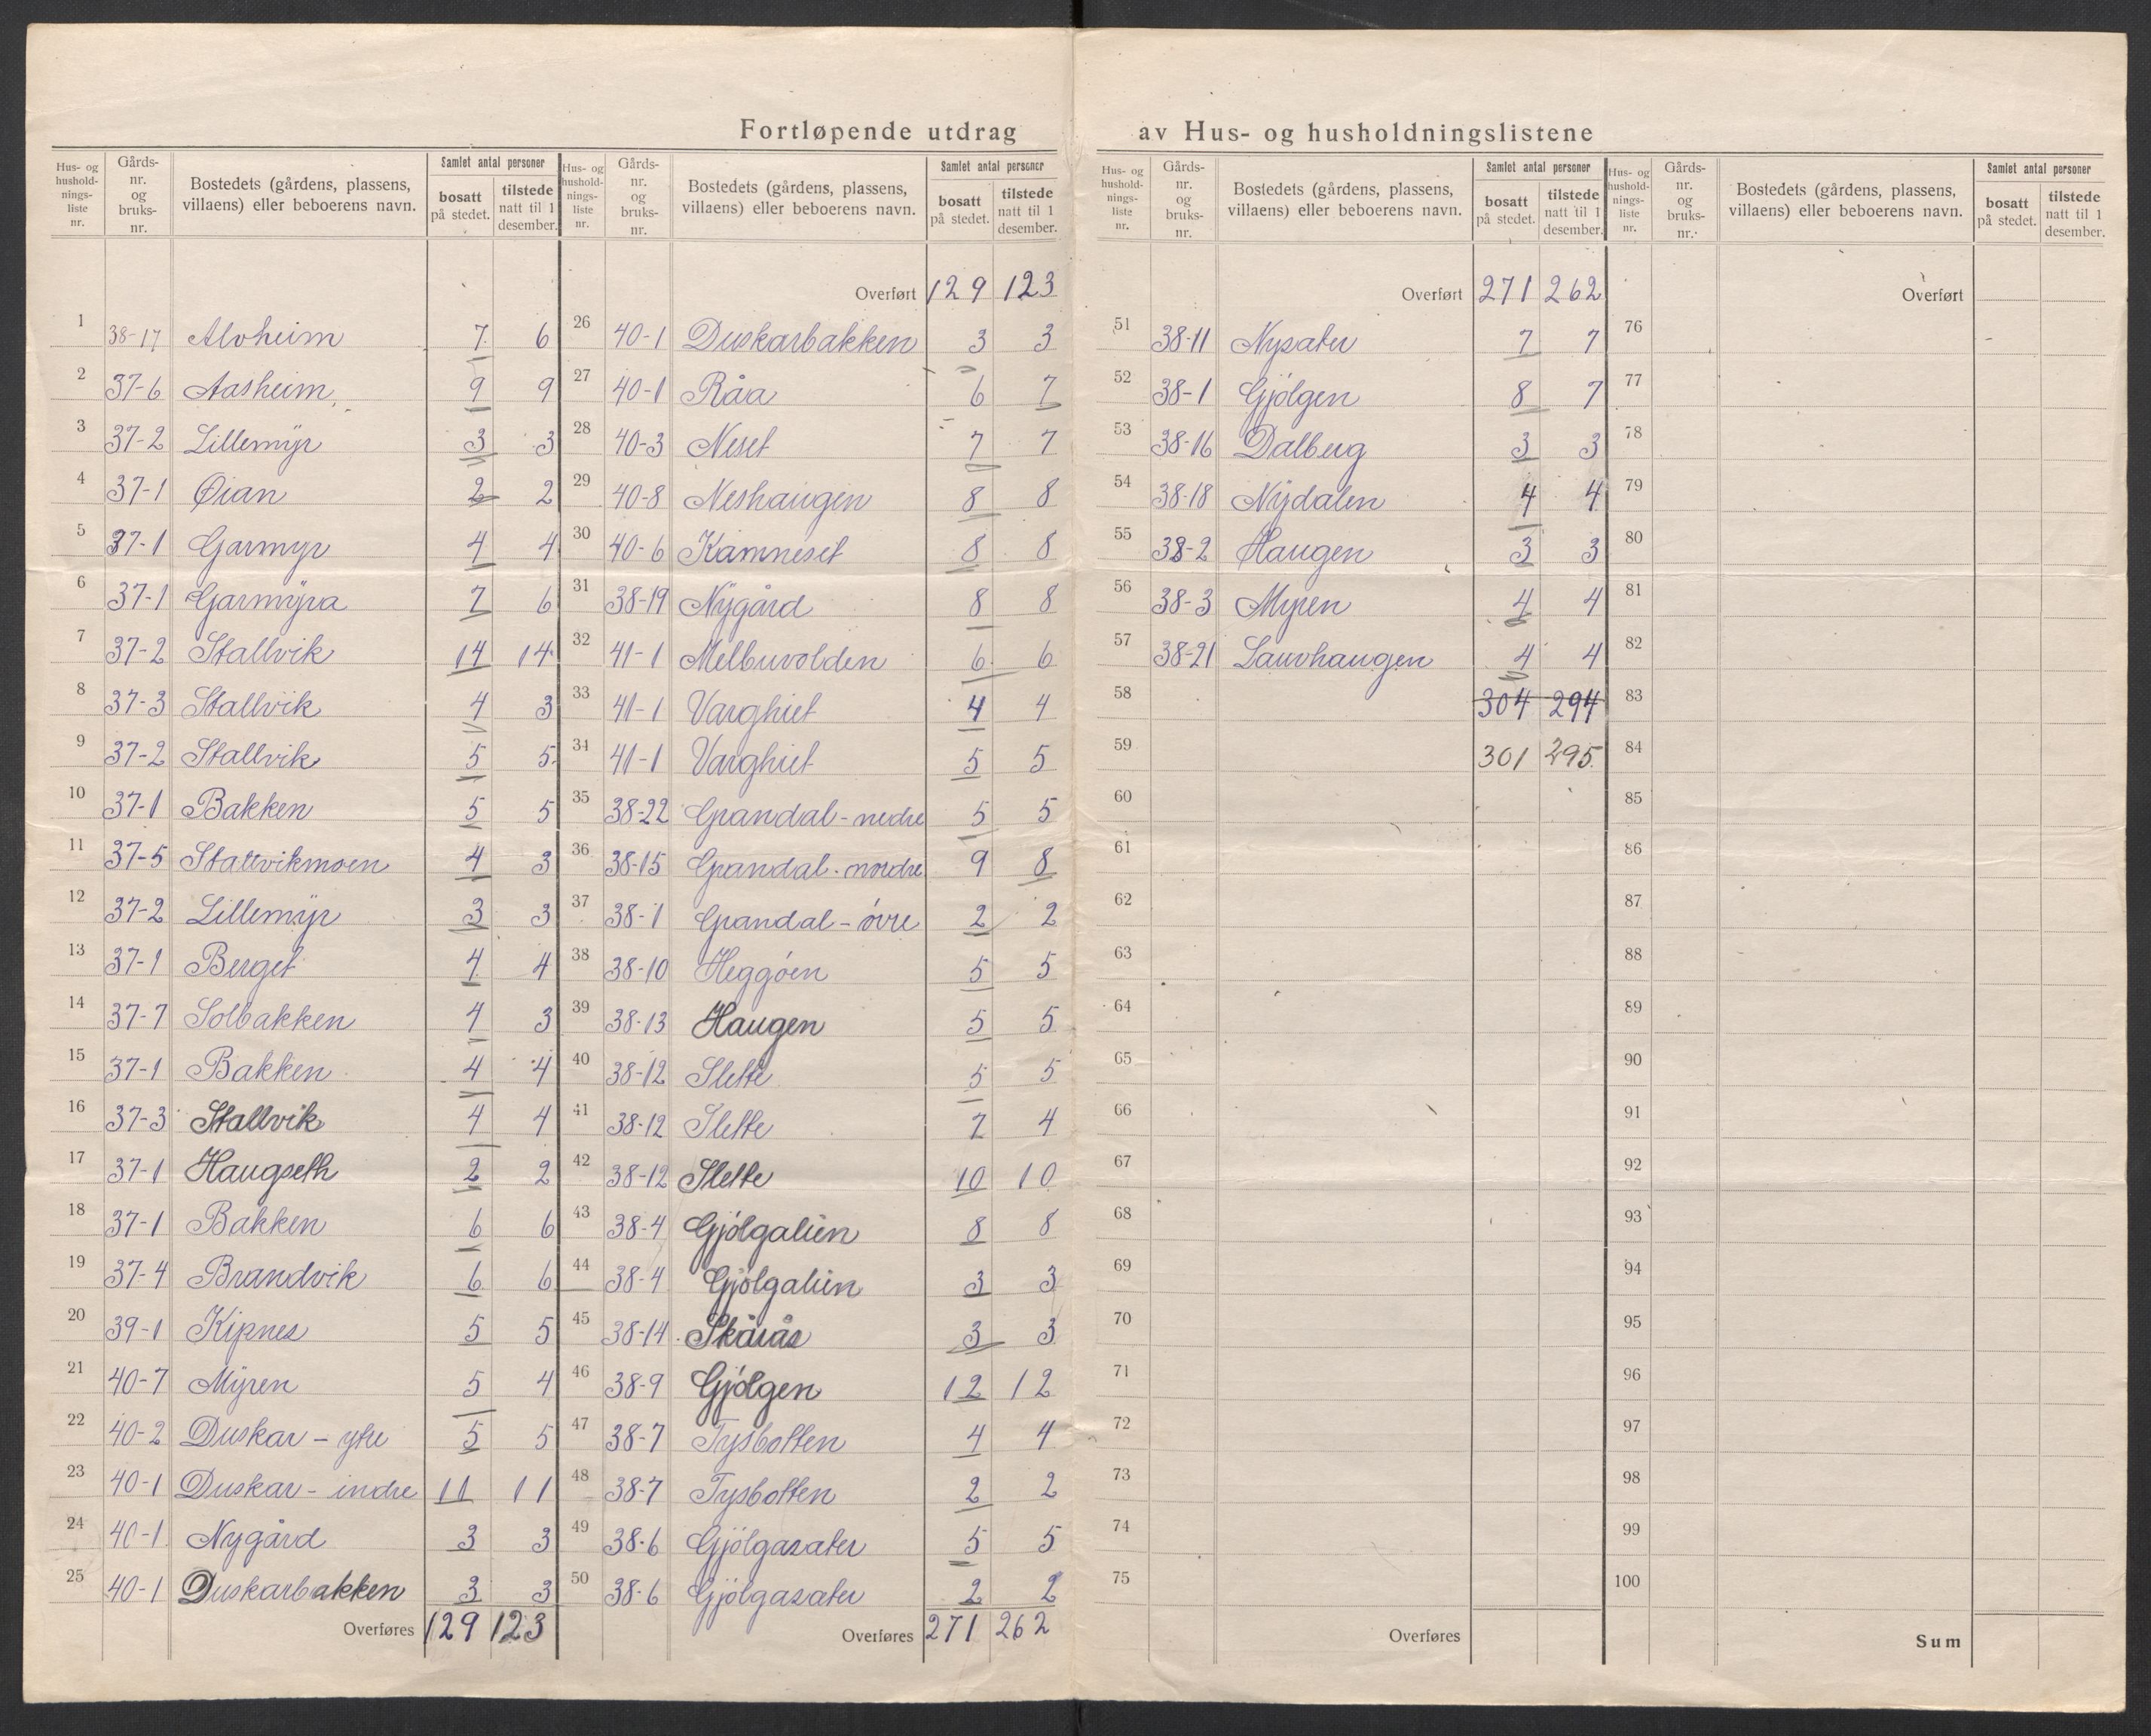 Fortløpende utdrag av Hus- og husholdningslistene
Hus- og husholdnings-liste nr. Gårds-nr. og bruks-nr. Bostedets (gårdens, plassens, villaens) eller beboerens navn. Samlet antal personer bosatt på stedet. tilstede natt til 1 desember.
1 38-17 Alvheim 7 6
2 37-6 Aasheim 9 9
3 37-2 Lillemyr 3 3
4 37-1 Øian 2 2
5 37-1 Garmyr 4 4
6 37-1 Garmyra 7 6
7 37-2 Stallvik 14 14
8 37-3 Stallvik 4 3
9 37-2 Stallvik 5 5
10 37-1 Bakken 5 5
11 37-5 Stallvikmoen 4 3
12 37-2 Lillemyr 3 3
13 37-1 Berget 4 4
14 37-7 Solbakken 4 3
15 37-1 Bakken 4 4
16 37-3 Stallvik 4 4
17 37-1 Haugseth 2 2
18 37-1 Bakken 6 6
19 37-4 Brandvik 6 6
20 39-1 Kipnes 5 5
21 40-7 Myren 5 4
22 40-2 Duskar - ytre 5 5
23 40-1 Duskar - indre 11 11
24 40-1 Nygård 3 3
25 40-1 Duskarbakken 3 3
Overføres 129 123
Hus- og husholdnings-liste nr. Gårds-nr. og bruks-nr. Bostedets (gårdens, plassens, villaens) eller beboerens navn. Samlet antal personer bosatt på stedet. tilstede natt til 1 desember.
Overført 129 123
26 40-1 Duskarbakken 3 3
27 40-1 Råa 6 7
28 40-3 Neset 7 7
29 40-8 Neshaugen 8 8
30 40-6 Kamneset 8 8
31 38-19 Nygård 8 8
32 41-1 Melbuvolden 6 6
33 41-1 Varghiet 4 4
34 41-1 Varghiet 5 5
35 38-22 Grandal - nedre 5 5
36 38-15 Grandal - nordre 9 8
37 38-1 Grandal - övre 2 2
38 38-10 Heggöen 5 5
39 38-13 Haugen 5 5
40 38-12 Slette 5 5
41 38-12 Slette 7 4
42 38-12 Slette 10 10
43 38-4 Gjölgalien 8 8
44 38-4 Gjölgalien 3 3
45 38-14 Skårås 3 3
46 38-9 Gjölgen 12 12
47 38-7 Tysbotten 4 4
48 38-7 Tysbotten 2 2
49 38-6 Gjölgasater 5 5
50 38-6 Gjölgasater 2 2
Overføres 271 262
Hus- og husholdnings-liste nr. Gårds-nr. og bruks-nr. Bostedets (gårdens, plassens, villaens) eller beboerens navn. Samlet antal personer bosatt på stedet. tilstede natt til 1 desember.
Overført 271 262
51 38-11 Nysater 7 7
52 38-1 Gjölgen 8 7
53 38-16 Dalberg 3 3
54 38-18 Nydalen 4 4
55 38-2 Haugen 3 3
56 38-3 Myren 4 4
57 38-21 Lauvhaugen 4 4
58 304 294
59 301 295
60
61
62
63
64
65
66
67
68
69
70
71
72
73
74
75
Overføres
Hus- og husholdnings-liste nr. Gårds-nr. og bruks-nr. Bostedets (gårdens, plassens, villaens) eller beboerens navn. Samlet antal personer bosatt på stedet. tilstede natt til 1 desember.
Overført
76
77
78
79
80
81
82
83
84
85
86
87
88
89
90
91
92
93
94
95
96
97
98
99
100
Sum